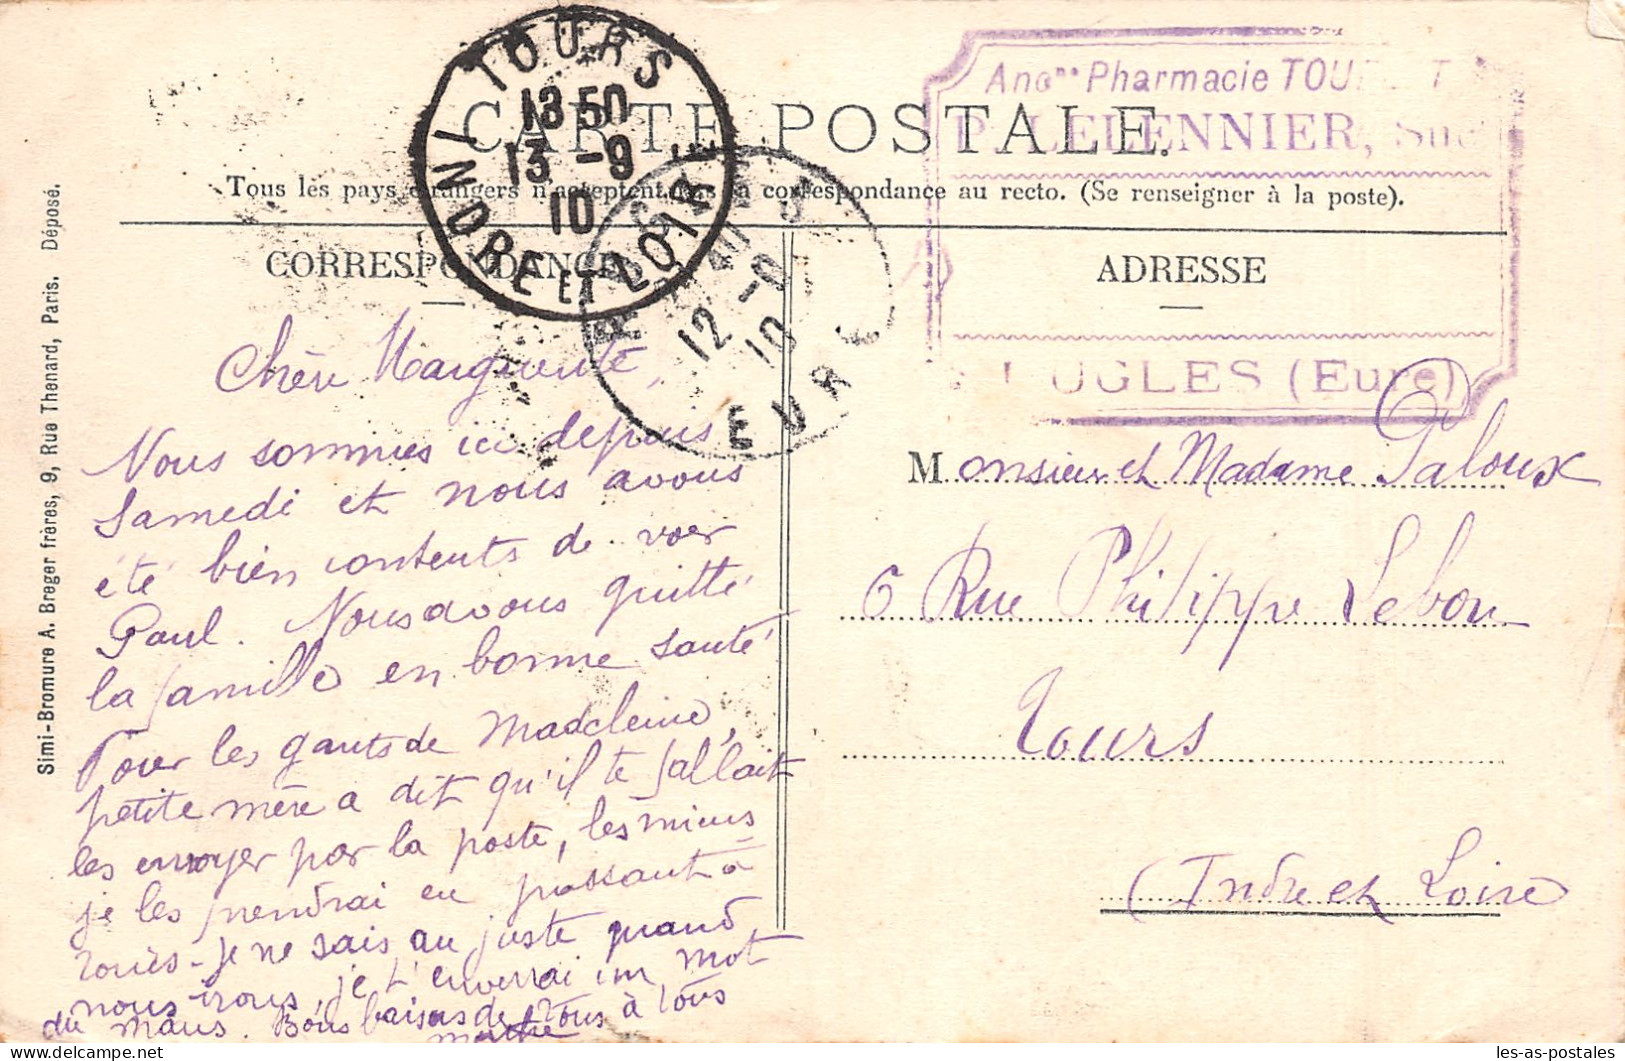 CARTE POSTALE
Tous les pays étrangers n'acceptent pas la correspondance au recto. (Se renseigner à la poste).
CORRESPONDANCE
ADRESSE
Simi-Bromure A. Breger frères, 9, Rue Thenard, Paris. Déposé.
TOURS
13 50
13 -9
10
INDRE ET LOIRE
12 -9
10
EURE
Anc. Pharmacie
LELENNIER, Suc
UGLES (Eure)
Chère Marguerite,
Nous sommes ici depuis
Samedi et nous avous
été bien contents de voir
Paul. Nous avous quitté
la famille en bonne santé
Pour les gants de Madeleine,
petite mère a dit qu'il te fallait
les envoyer par la poste, les miens
je les prendrai en passant à
Je ne sais au juste quand
nous irons, je t'enverrai un mot
du Mans. Bons baisers de tous à tous
Marthe
Monsieur et Madame Galoux
6 Rue Philippe Lebon
Tours
(Indre et Loire
les-as-postales